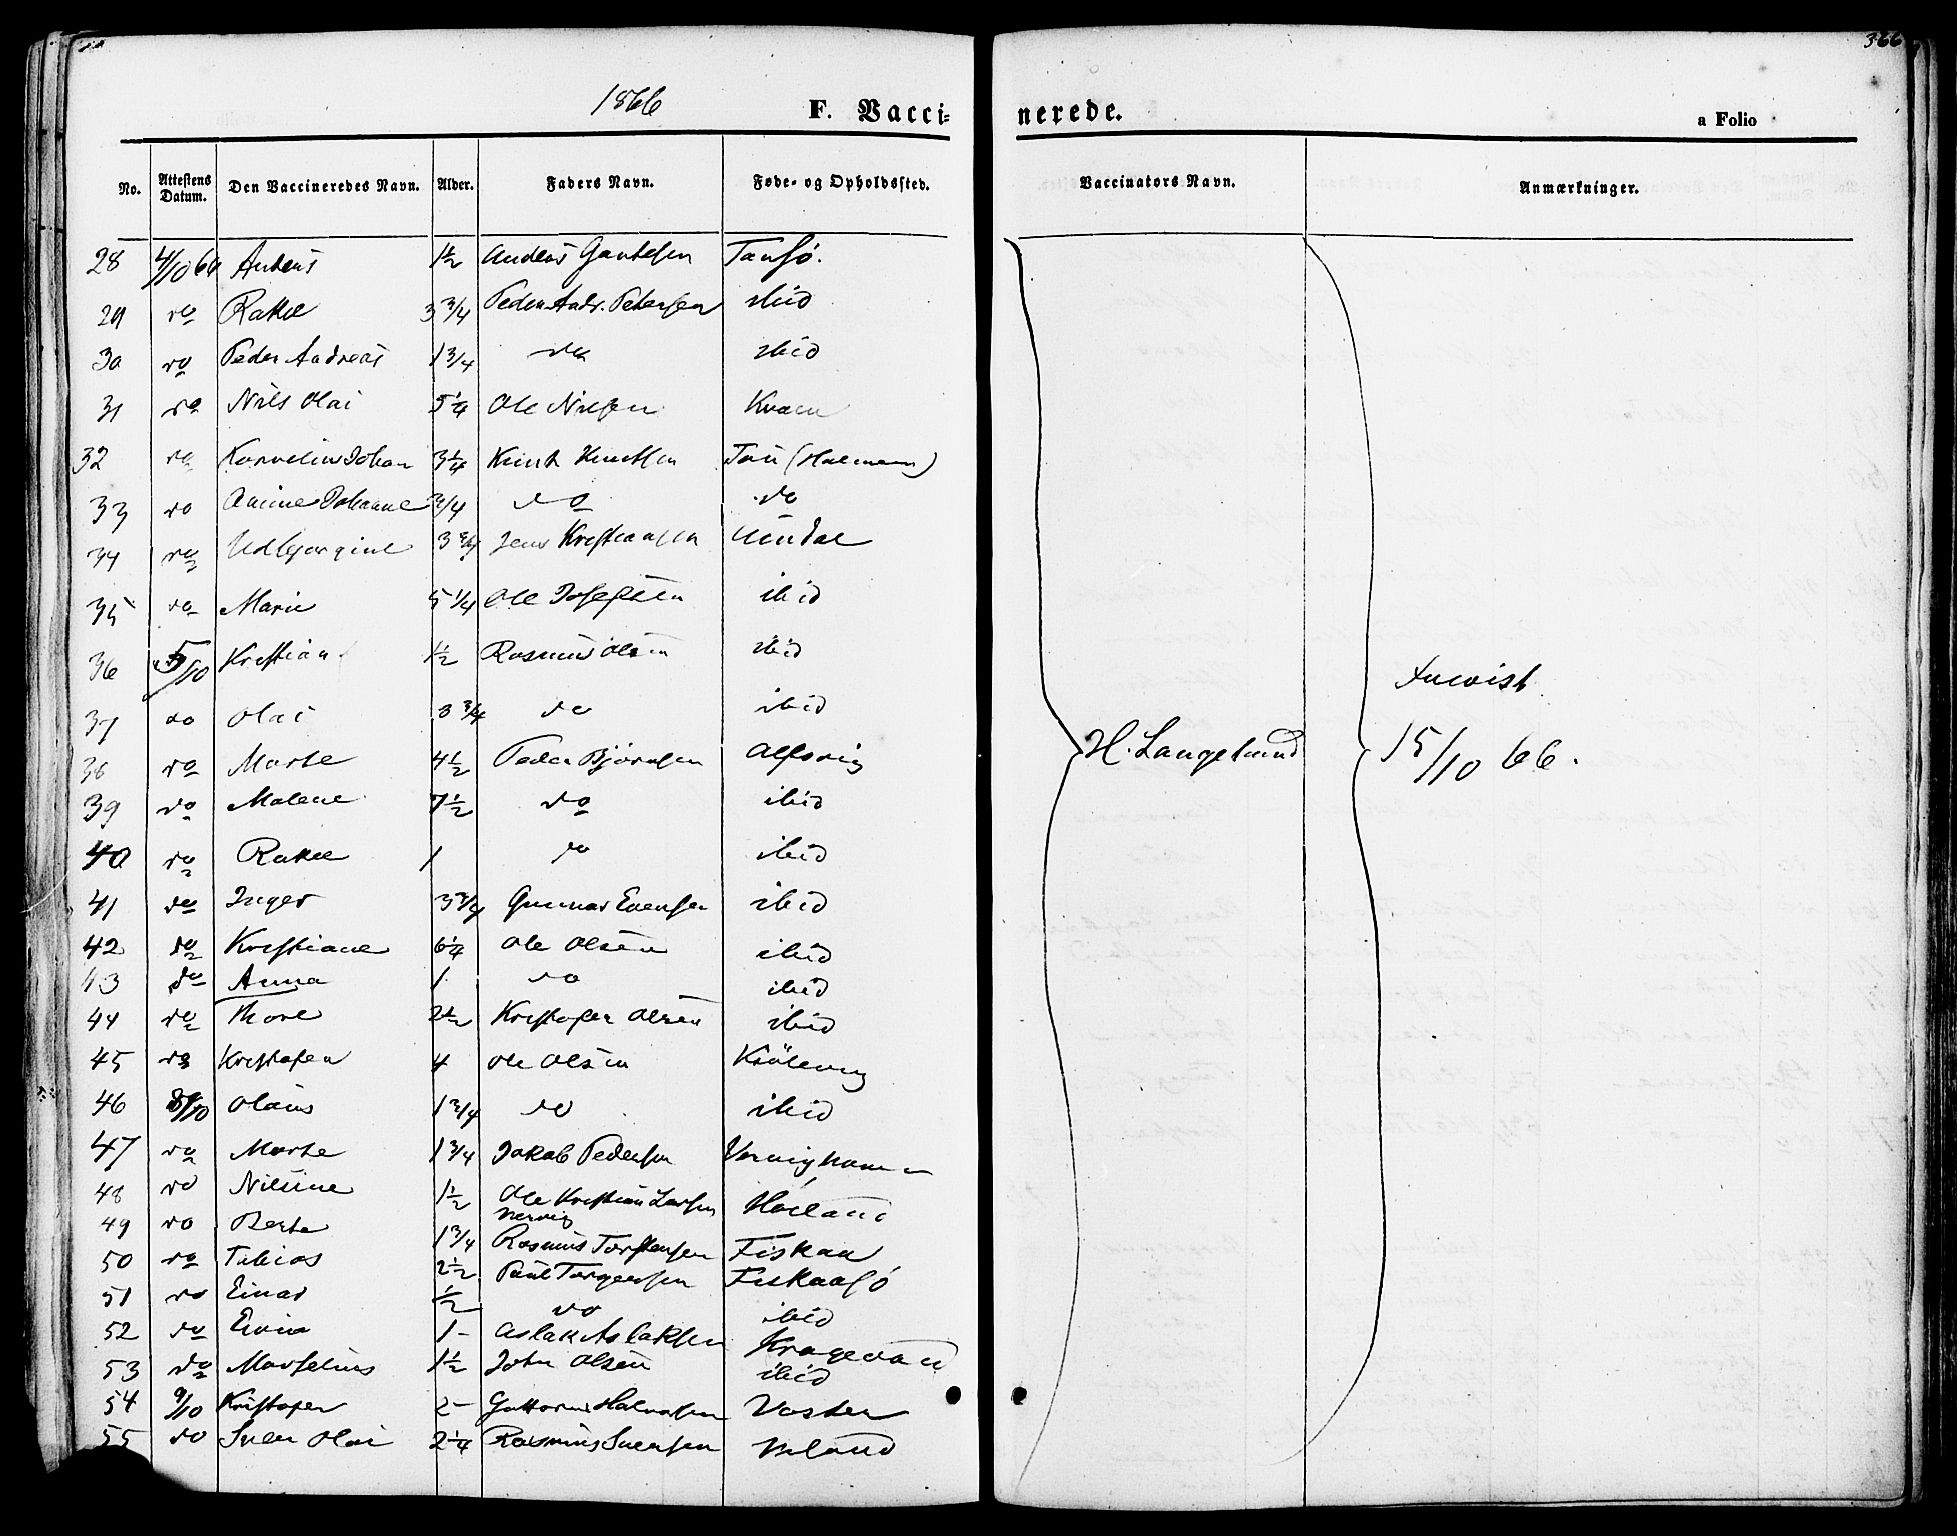 366
1866
F. Vaccinerede.
a Folio
No. Attestens Datum. Den Vaccineredes Navn. Alder. Faders Navn. Føde- og Opholdssted. Vaccinators Navn. Anmærkninger.
28 4/10 66 1½ Anders
29 do Rakel 3 3/4 Peder Andr. Petersen ibid
30 do Peder Andreas 1 3/4 do ibid
31 do Nils Olai 5¼ Ole Nilsen
32 do Kornelius Johan 3¼ Knut Knutsen Tau
33 do Johanne 3/4 do do
34 do 3 3/4 Jens Kristiansen
35 do Marie 5 1/4 Ole Josefsen ibid
36 5/10 Kristian ½ Rasmus Olsen ibid
37 do Olai 3 3/4 do ibid
38 do Marte 4½ Peder Bjørnsen
39 do Malene 7½ do ibid
40 do Rakel 1 do ibid
41 do Inger 3 3/4 Gunnar Evensen ibid
42 do Kristiane 6¼ Ole Olsen ibid
43 do Anna 1 do ibid
44 do Thore 2½ Kristofer Olsen ibid
45 do Kristofer 4 Ole Olsen
46 8/10 Olaus 1 3/4 do ibid
47 do Marte 1 3/4 Jakob Pedersen
48 do Nilsine 1½ Ole Kristian Larsen
49 do Berte 1 3/4 Rasmus Torstensen Fiskaa
50 do Tobias 2½ Paul Torgersen Fiskaasø
51 do Einar ½ do ibid
52 do 1- Aslak Aslaksen
53 do Marselius 1½ John Olsen ibid
54 9/10 Kristofer 2- Guttorm Halvorsen
55 do Sven Olai 2¼ Rasmus Svensen
H. Langelund
15/10 66.